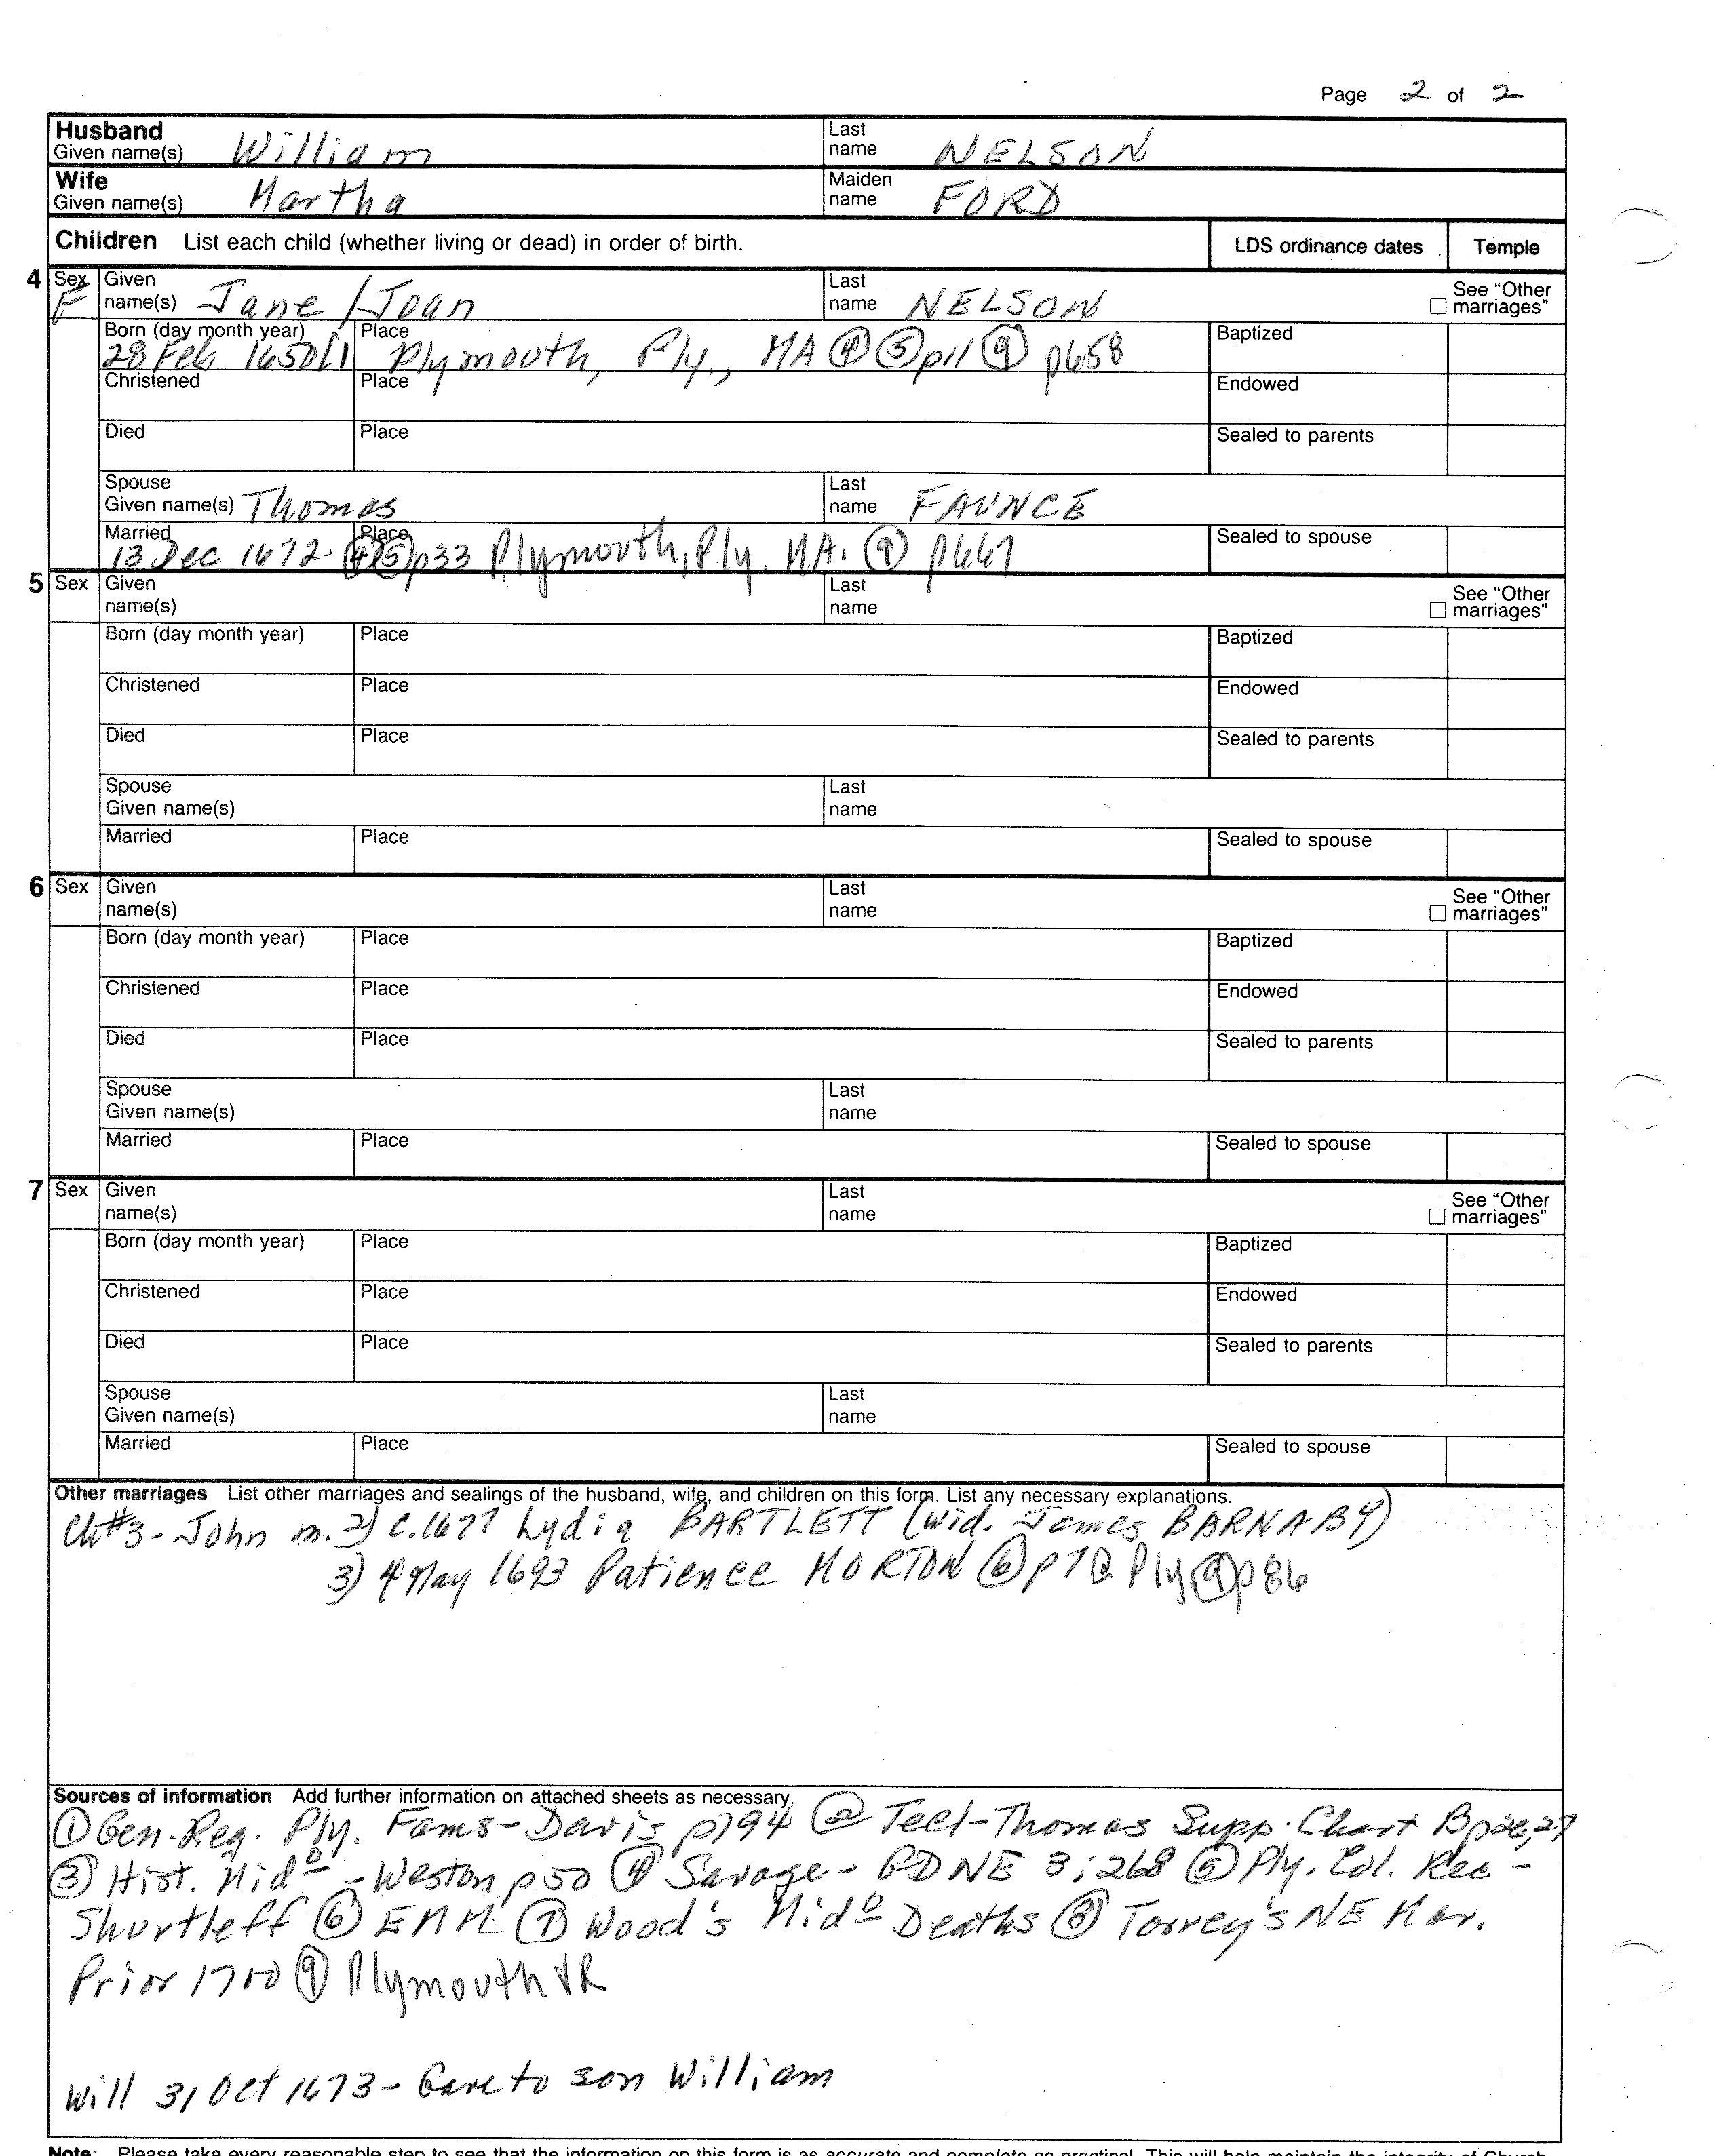 Page 2 of 2
Husband Given name(s) William Last name NELSON
Wife Given name(s) Martha Maiden name FORD
Children List each child (whether living or dead) in order of birth. LDS ordinance dates Temple
4 Sex F Given name(s) Jane / Joan Last name NELSON See "Other marriages"
Born (day month year) 28 Feb 1650/1 Place Plymouth, Ply., MA ④ ⑤ p11 ⑨ p658 Baptized
Christened Place Endowed
Died Place Sealed to parents
Spouse Given name(s) Thomas Last name FAUNCE
Married 13 Dec 1672 Place ④ ⑤ p33 Plymouth, Ply. MA. ⑨ p667 Sealed to spouse
5 Sex Given name(s) Last name See "Other marriages"
Born (day month year) Place Baptized
Christened Place Endowed
Died Place Sealed to parents
Spouse Given name(s) Last name
Married Place Sealed to spouse
6 Sex Given name(s) Last name See "Other marriages"
Born (day month year) Place Baptized
Christened Place Endowed
Died Place Sealed to parents
Spouse Given name(s) Last name
Married Place Sealed to spouse
7 Sex Given name(s) Last name See "Other marriages"
Born (day month year) Place Baptized
Christened Place Endowed
Died Place Sealed to parents
Spouse Given name(s) Last name
Married Place Sealed to spouse
Other marriages List other marriages and sealings of the husband, wife, and children on this form. List any necessary explanations.
Ch#3 - John m. 2) c.1677 Lydia BARTLETT (wid. James BARNABY)
3) 4 May 1693 Patience MORTON ⑥ p7 @ Ply ⑨ p86
Sources of information Add further information on attached sheets as necessary.
① Gen. Reg. Ply. Fams - Davis p194 ② Teel-Thomas Supp. Chart B
③ Hist. Midº - Weston p50 ④ Savage - GDNE 3:268 ⑤ Ply. Col. Rec -
Shurtleff ⑥ EMM ⑦ Wood's Midº Deaths ⑧ Torrey's NE Mar.
Prior 1700 ⑨ Plymouth VR
Will 31 Oct 1673 - Gave to son William
Note: Please take every reasonable step to see that the information on this form is as accurate and complete as practical. This will help maintain the integrity of Church